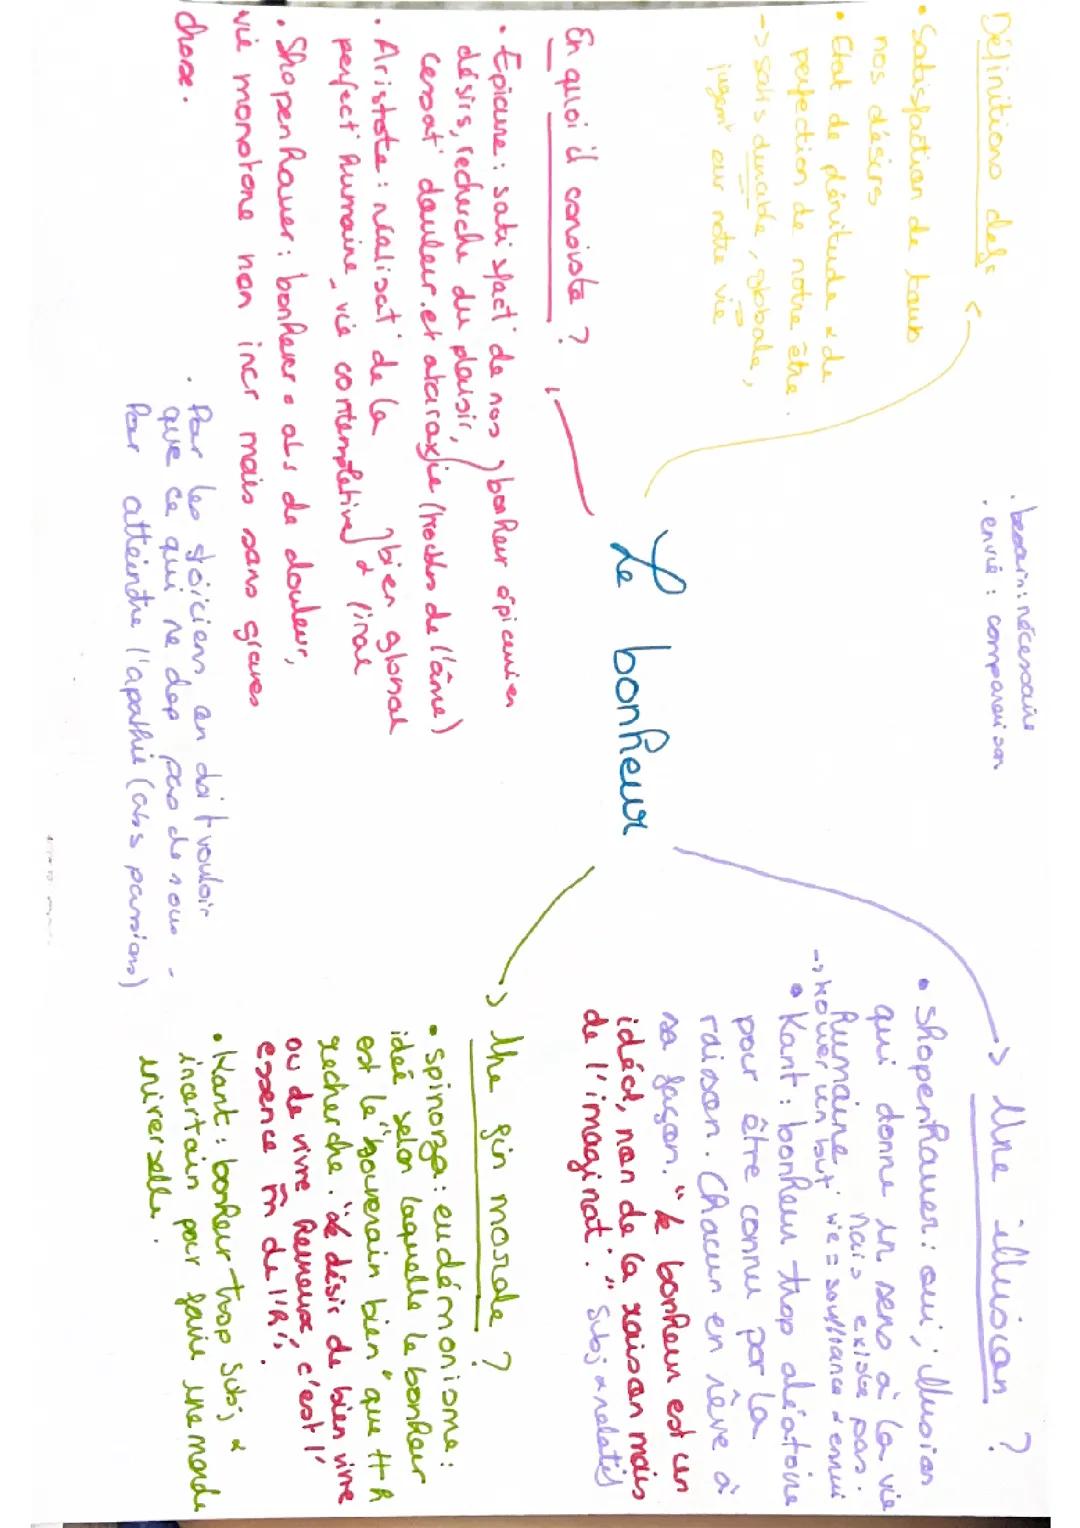 Le bonheur
Définitions des
• Satisfaction de tous
nos désirs
• Etat de plénitude & de
perfection de notre être.
-> satis durable, globale,
jugemt sur notre vie
. besoin : nécessaire
. envie : comparaison
En quoi il consiste ?
• Epicure : satisfact° de nos
désirs, recherche du plaisir,
cessat° douleur et ataraxie (troubles de l'âme)
bonheur épicurien
• Aristote : réalisat° de la
perfect° humaine, vie contemplative
bien global
& final
• Shopenhauer : bonheur = abs de douleur,
vie monotone non incr mais sans graves
chose.
. Par les stoïciens, on doit vouloir
que ce qui ne dep pas de nous -
Par atteindre l'apathie (abs passions)
-> Une illusion ?
• Shopenhauer : oui, illusion
qui donne un sens à la vie
humaine, mais existe pas.
-> trouver un but, vie = souffrance & ennui
• Kant : bonheur trop aléatoire
pour être connu par la
raison. Chacun en rêve à
sa façon. "Le bonheur est un
idéal, non de la raison mais
de l'imaginat°." Subj & relatif
-> Une fin morale ?
• Spinoza : eudémonisme :
idée selon laquelle le bonheur
est le "souverain bien" que tt h
recherche. "Le désir de bien vivre
ou de vivre heureux, c'est l'
essence m de l'h".
• Kant : bonheur trop subj &
incertain pour faire une morale
universelle.